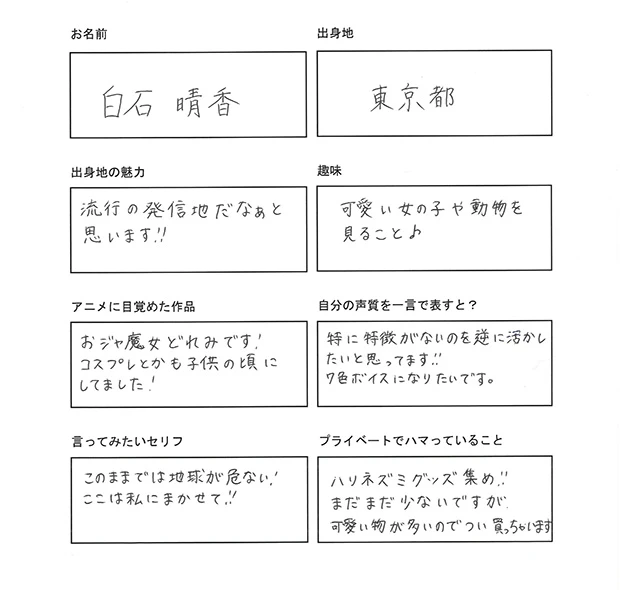 お名前
白石 晴香
出身地
東京都
出身地の魅力
流行の発信地だなぁと
思います!!
趣味
可愛い女の子や動物を
見ること♪
アニメに目覚めた作品
おジャ魔女どれみです!
コスプレとかも子供の頃に
してました!
自分の声質を一言で表すと？
特に特徴がないのを逆に活かし
たいと思ってます!!
7色ボイスになりたいです。
言ってみたいセリフ
このままでは地球が危ない!
ここは私にまかせて!!
プライベートでハマっていること
ハリネズミグッズ集め!!
まだまだ少ないですが、
可愛い物が多いのでつい買っちゃいます